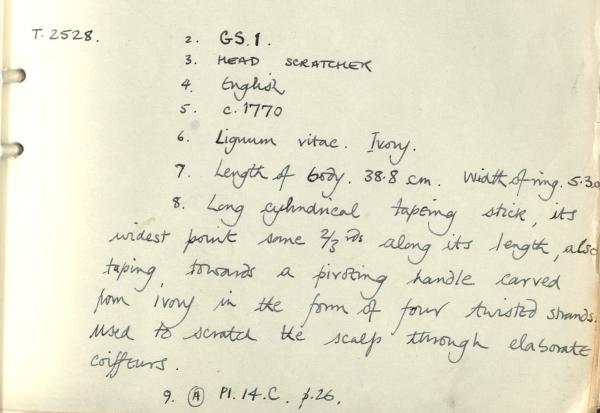 T. 2528.
2. GS.1.
3. HEAD SCRATCHER
4. English
5. c.1770
6. Lignum vitae. Ivory.
7. Length of body. 38.8 cm. Width of ring. 5.3
8. Long cylindrical tapering stick, its
widest point some 2/3 rds along its length, also
taping, towards a pivoting handle carved
from ivory in the form of four twisted strands.
Used to scratch the scalp through elaborate
coiffeurs.
9. (A) Pl. 14.C. p.26.